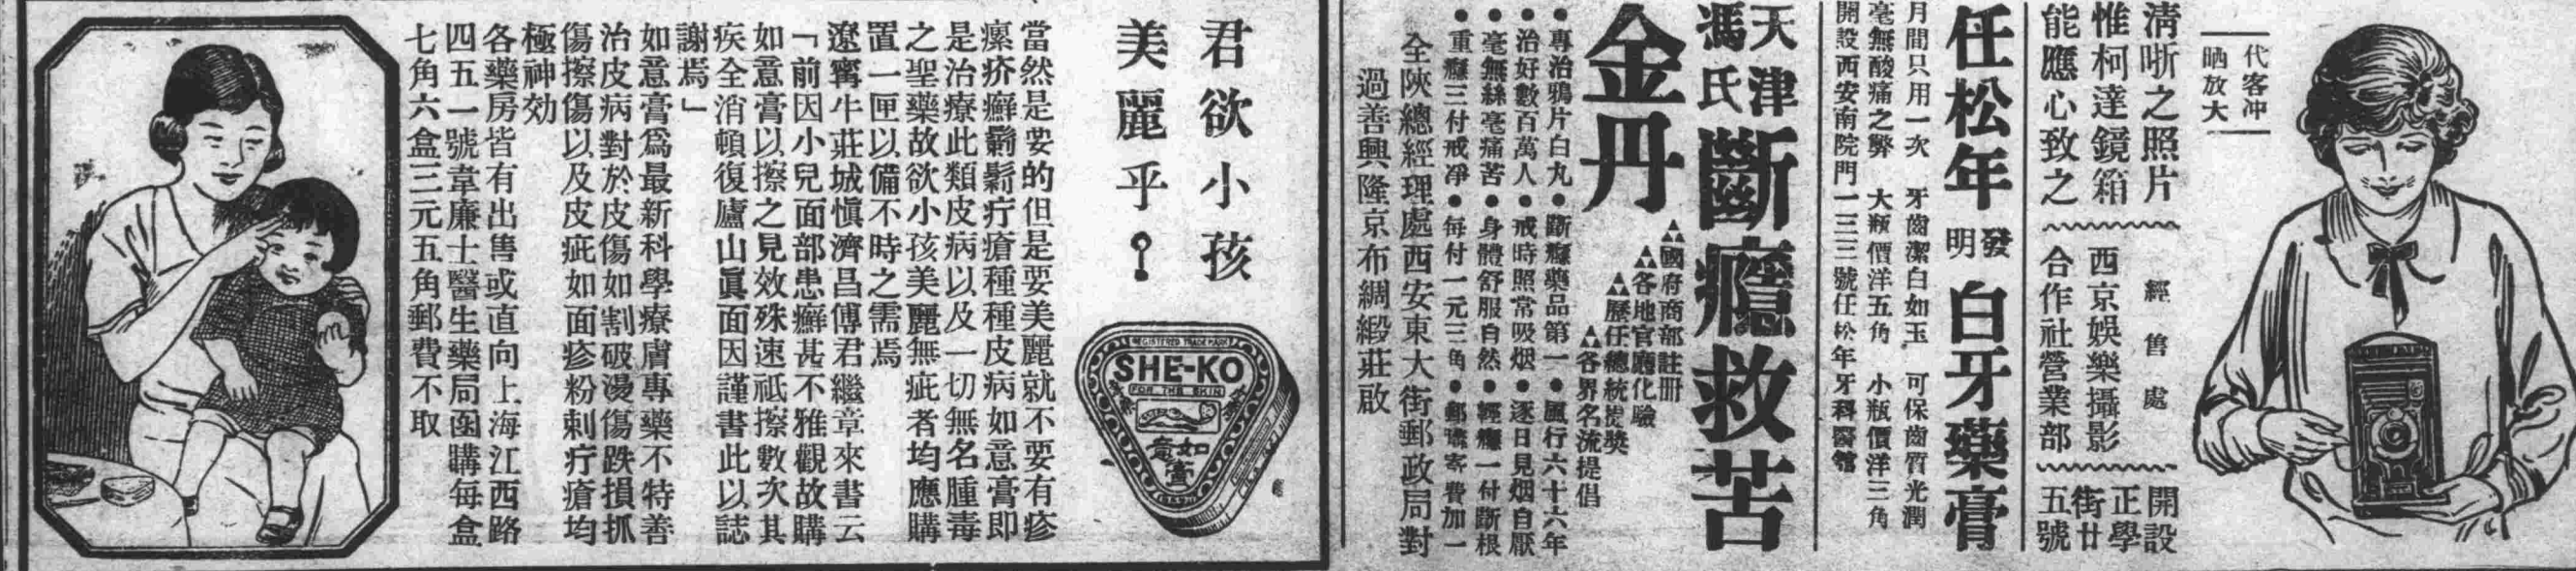 代客冲
晒放大
清晣之照片
惟柯達鏡箱
能應心致之
經售處
西京娛樂攝影
合作社營業部
開設
正學
街廿
五號
任松年發明白牙藥膏
月間只用一次 牙齒潔白如玉 可保齒質光潤
毫無酸痛之弊 大瓶價洋五角 小瓶價洋三角
開設西安南院門一三三號任松年牙科醫舘
天津
馮氏
斷癮救苦
金丹
△△國府商部註冊
△△各地官廳化驗
△△歷任總統獎
△各界名流提倡
●專治鴉片白丸●斷癮藥品第一●風行六十六年
●治好數百萬人●戒時照常吸烟●逐日見烟自厭
●毫無絲毫痛苦●身體舒服自然●輕癮一付斷根
●重癮三付戒凈●每付一元三角●郵寄費加一
全陝總經理處西安東大街郵政局對
過善興隆京布綢緞莊啟
君欲小孩
美麗乎？
REGISTERED TRADE MARK
SHE-KO
FOR THE SKIN
如意膏
當然是要的但是要美麗就不要有疹
瘰疥癬鬎鬁疔瘡種種皮病如意膏即
是治療此類皮病以及一切無名腫毒
之聖藥故欲小孩美麗無疵者均應購
置一匣以備不時之需焉
遼寗牛莊城慎濟昌傅君繼章來書云
「前因小兒面部患癬甚不雅觀故購
如意膏以擦之見效殊速祗擦數次其
疾全消頓復廬山眞面因謹書此以誌
謝焉」
如意膏爲最新科學療膚專藥不特善
治皮病對於皮傷如割破湯傷跌損抓
傷擦傷以及皮疵如面疹粉刺疔瘡均
極神効
各藥房皆有出售或直向上海江西路
四五一號韋廉士醫生藥局函購每盒
七角六盒三元五角郵費不取